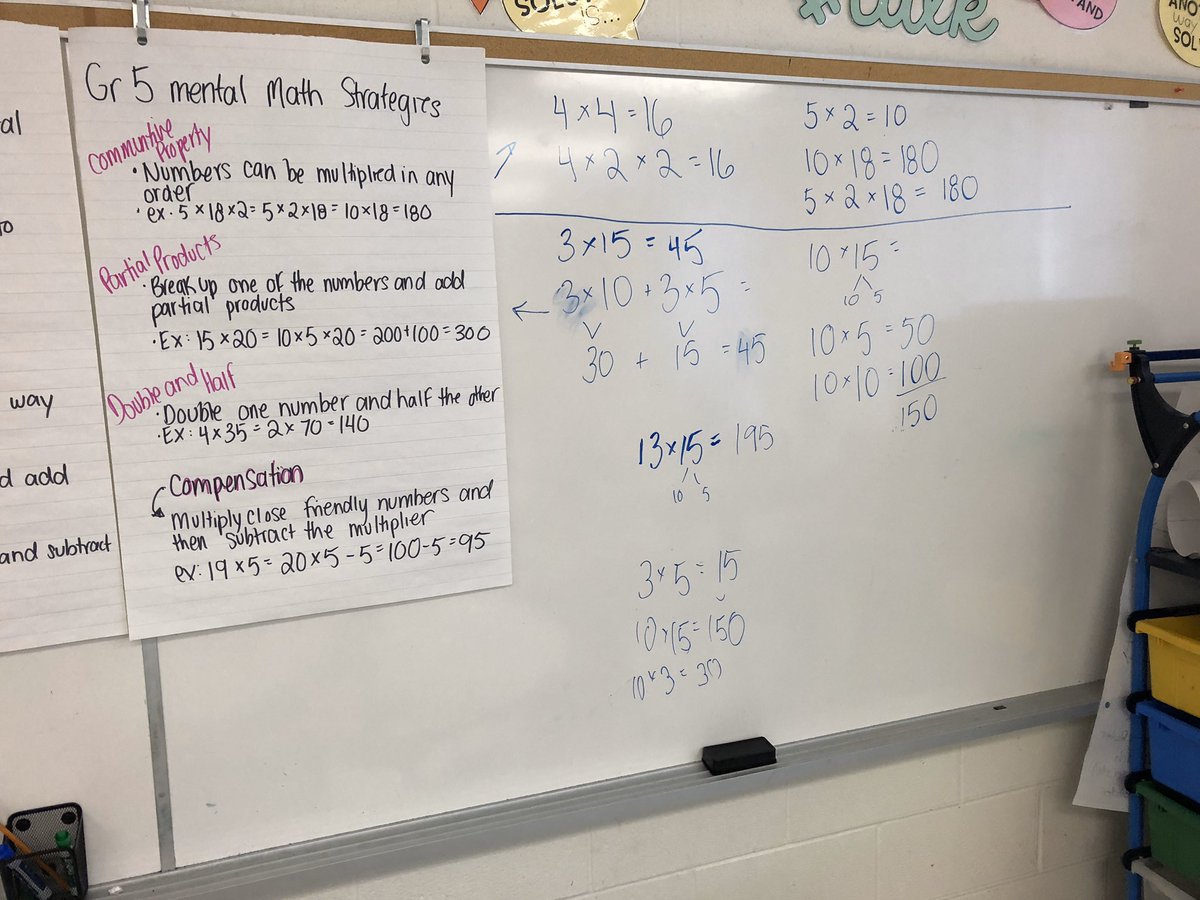 SOLU
IS...
talk
AND
ANO
way
SOL
al
to
way
d add
and subtract
Gr 5 mental Math Strategies
Communtive Property
• Numbers can be multiplied in any
order
• ex. 5 × 18 × 2 = 5 × 2 × 18 = 10 × 18 = 180
Partial Products
• Break up one of the numbers and add
partial products
• Ex: 15 × 20 = 10 × 5 × 20 = 200 + 100 = 300
Double and Half
• Double one number and half the other
• Ex: 4 × 35 = 2 × 70 = 140
Compensation
Multiply close friendly numbers and
then subtract the multiplier
ex: 19 × 5 = 20 × 5 - 5 = 100 - 5 = 95
4 × 4 = 16
4 × 2 × 2 = 16
5 × 2 = 10
10 × 18 = 180
5 × 2 × 18 = 180
3 × 15 = 45
3 × 10 + 3 × 5 =
30 + 15 = 45
10 × 15 =
10 5
10 × 5 = 50
10 × 10 = 100
150
13 × 15 = 195
10 5
3 × 5 = 15
10 × 15 = 150
10 × 3 = 30